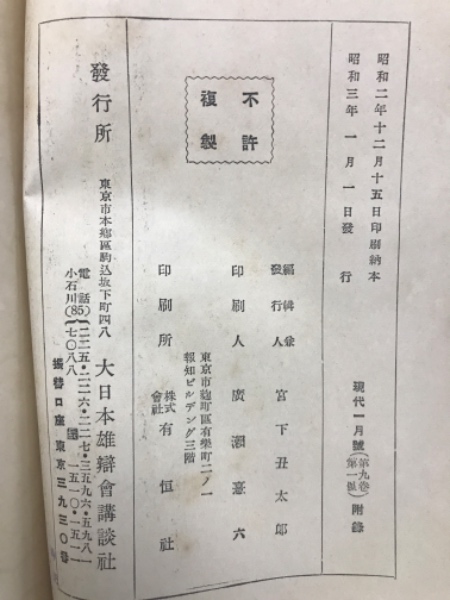 昭和二年十二月十五日印刷納本
昭和三年一月一日發行
現代一月號(第九卷第一號)附錄
不許
複製
編輯兼
發行人 宮下丑太郎
印刷人 廣瀨憙六
東京市麹町區有樂町二ノ一
報知ビルデング三階
印刷所 株式會社 有恒社
發行所 東京市本鄕區駒込坂下町四八 大日本雄辯會講談社
電話
小石川(85)
振替口座東京三九三〇番